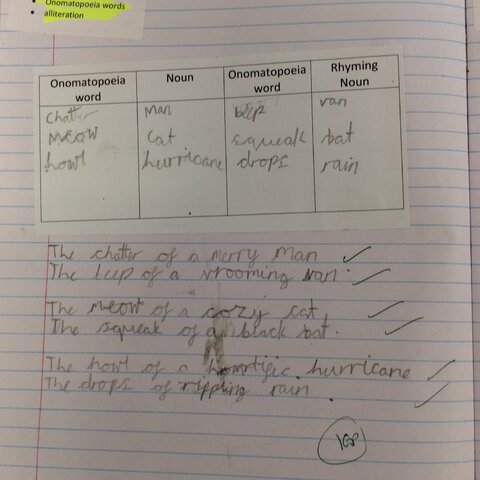 Onomatopoeia words
alliteration
Onomatopoeia word Noun Onomatopoeia word Rhyming Noun
Chatter Man beep van
Meow cat squeak bat
howl hurricane drops rain
The chatter of a merry man
The beep of a vrooming van.
The meow of a cozy cat,
The squeak of a black bat.
The howl of a hurricane
The drops of rippling rain.